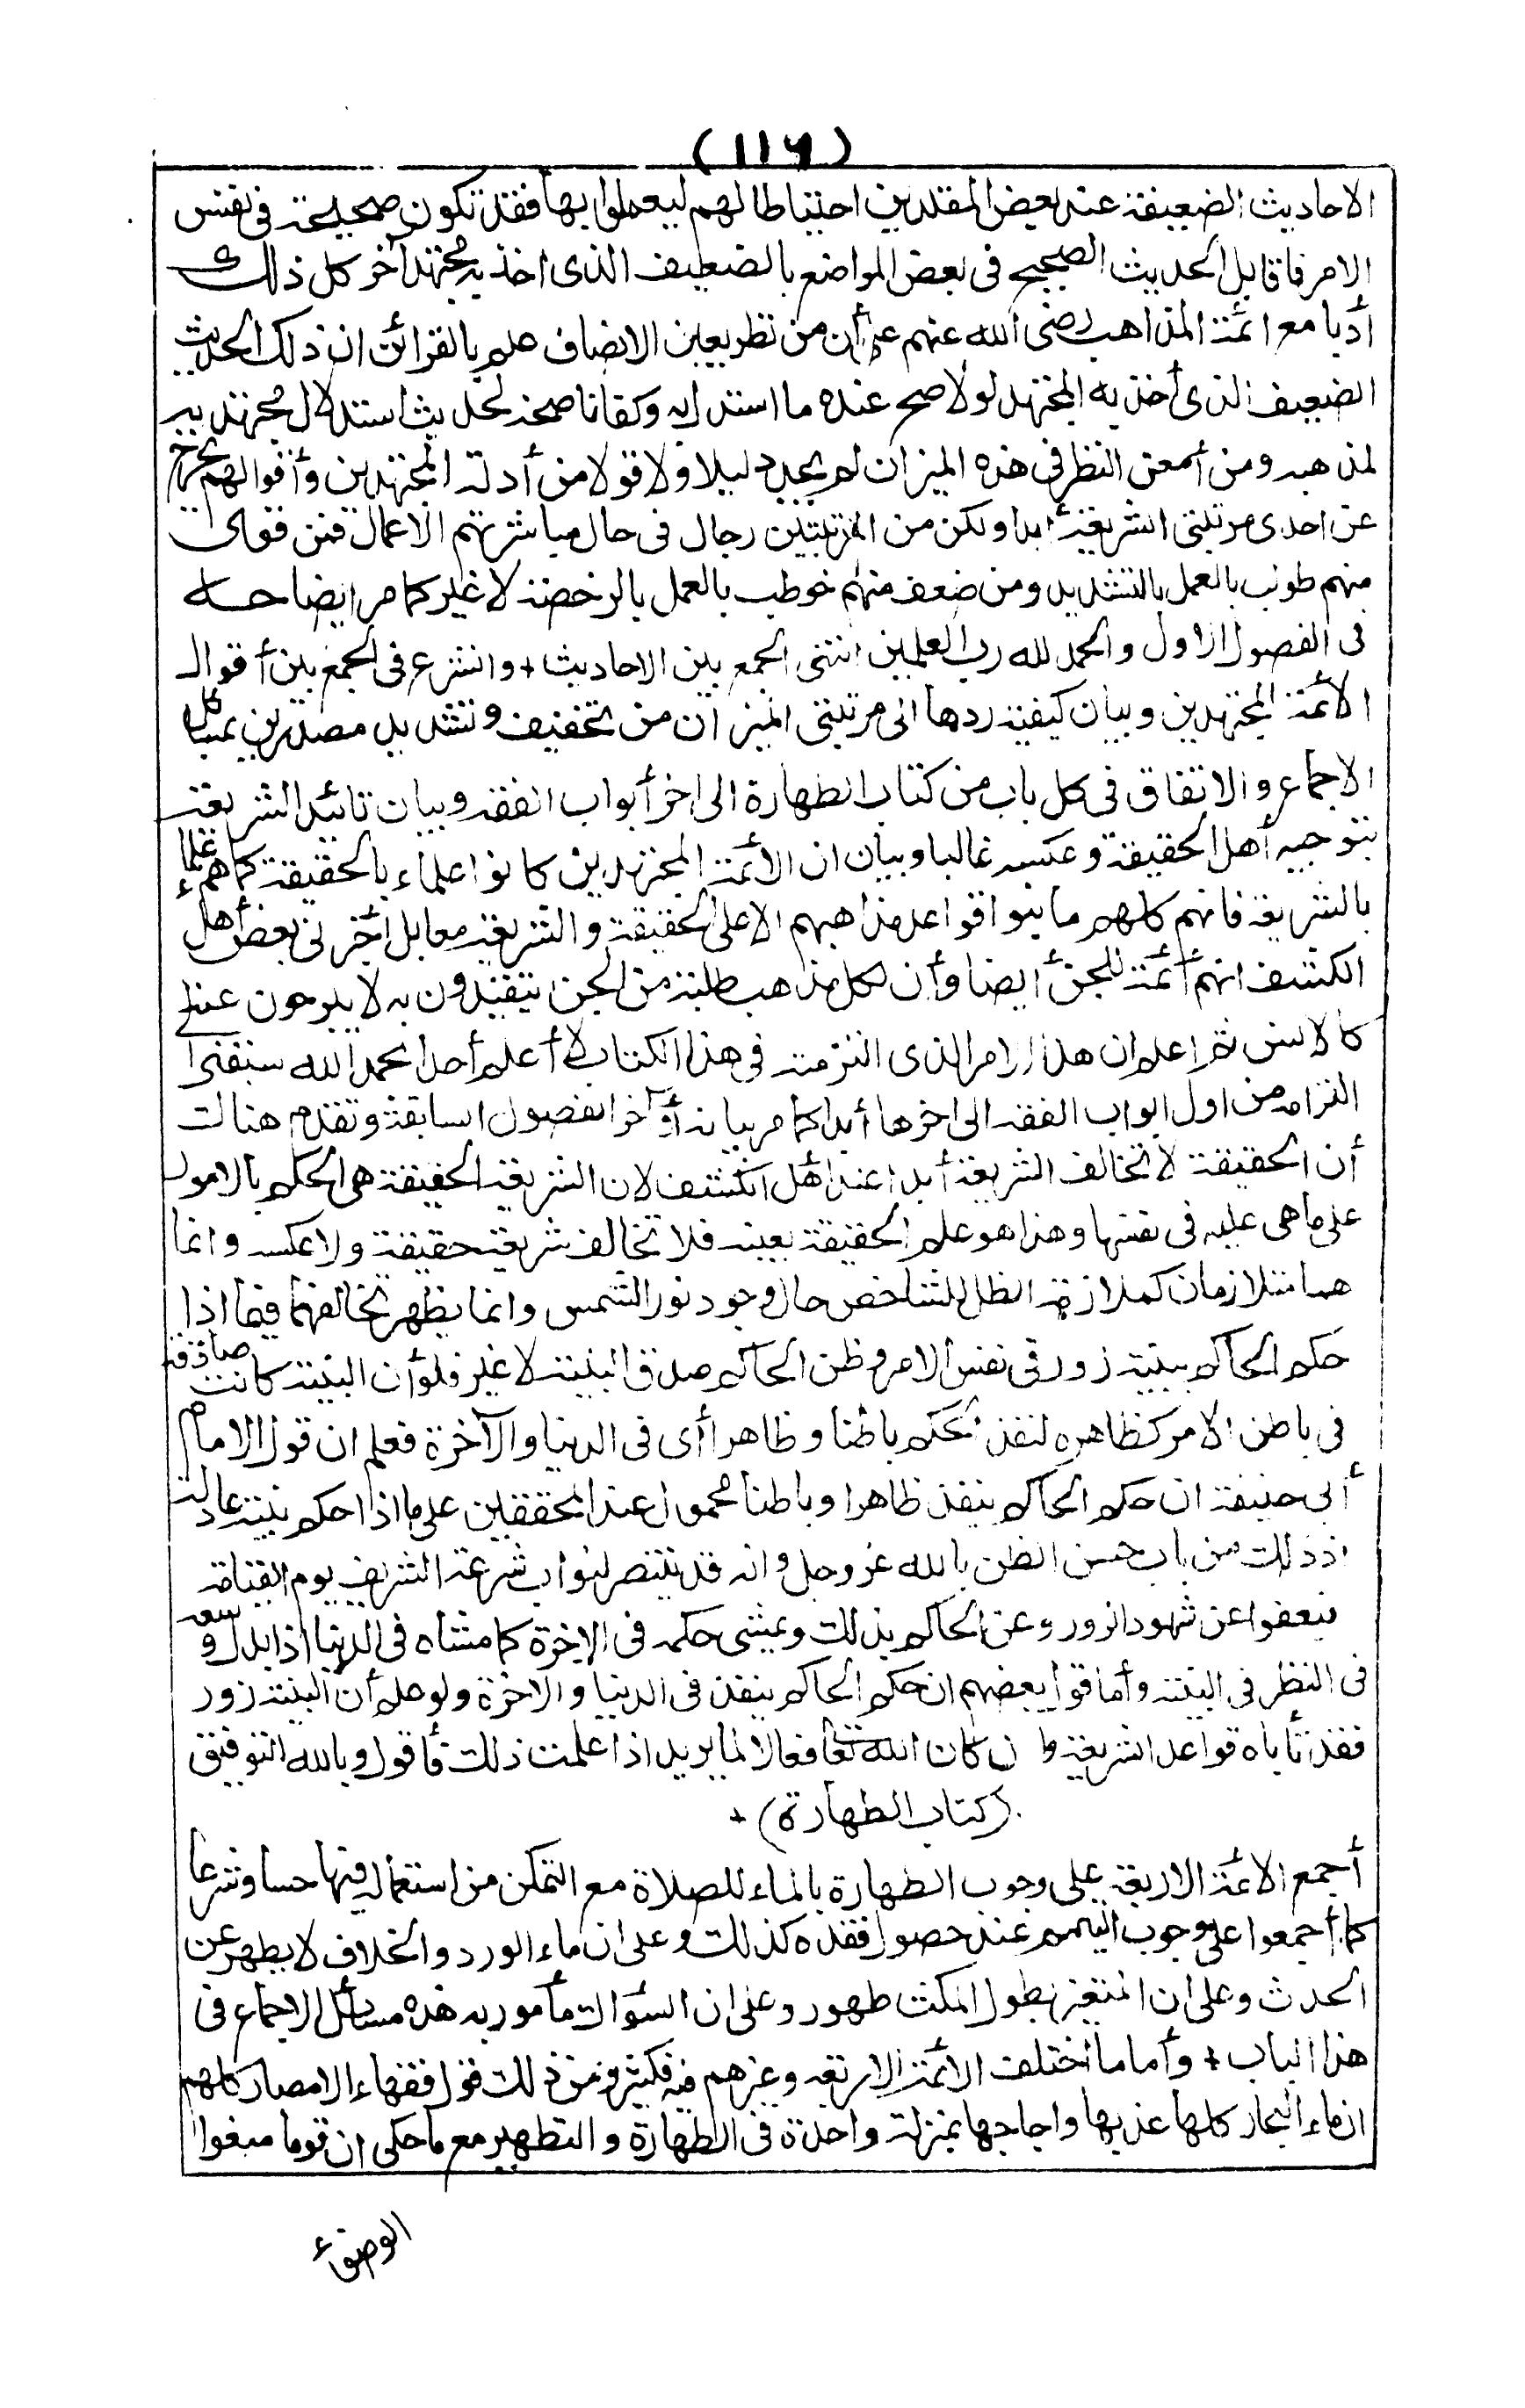 (١١٦)
الاحاديث الضعيفة عند بعض المقلدين احتياطا لهم ليعملوا بها فقد تكون صحيحة فى نفس
الامر فاقابل الحديث الصحيح فى بعض المواضع بالضعيف الذى اخذ به مجتهد آخر كل ذلك
أدبا مع ائمة المذاهب رضى الله عنهم على أن من نظر بعين الانصاف علم بالقرائن ان ذلك الحديث
الضعيف الذى أخذ به المجتهد لولا صح عنده ما استدل به وكفانا صحة لحديث استدلال مجتهد به
لمذهبه ومن أمعن النظر فى هذه الميزان لم يجد دليلا ولا قولا من أدلة المجتهدين وأقوالهم يخرج
عن احدى مرتبتى الشريعة أبدا ولكن من المرتبتين رجال فى حال مباشرتهم الاعمال فمن قوى
منهم طولب بالعمل بالتشديد ومن ضعف منهم خوطب بالعمل بالرخصة لا غير كما مر ايضاحه
فى الفصول الاول والحمد لله رب العلمين انتهى الجمع بين الاحاديث + وانشرع فى الجمع بين أقوال
الأئمة المجتهدين وبيان كيفية ردها الى مرتبتى الميزان من تخفيف وتشديد مصدرين بمسائل
الاجماع والاتفاق فى كل باب من كتاب الطهارة الى اخر أبواب الفقه وبيان تائيد الشريعة
بتوجيه أهل الحقيقة وعكسه غالبا وبيان ان الأئمة المجتهدين كانوا علماء بالحقيقة كما هم علماء
بالشريعة فانهم كلهم ما بنوا قواعد مذاهبهم الا على الحقيقة والشريعة معا بل أخبرنى بعض أهل
الكشف انهم أئمة للجن أيضا وأن لكل مذهب طلبة من الجن يتقيدون به لا يبرحون عنه
كالانس ثم اعلم ان هذا الامر الذى التزمته فى هذا الكتاب لا أعلم أحدا بحمد الله سبقنى الى
التزامه من اول ابواب الفقه الى اخرها أبدا كما مر بيانه أواخر الفصول السابقة وتقدم هنالك
أن الحقيقة لا تخالف الشريعة أبدا عند أهل الكشف لان الشريعة الحقيقة هى الحكم بالامور
على ما هى عليه فى نفسها وهذا هو علم الحقيقة بعينه فلا تخالف شريعة حقيقة ولا عكسه وانما
هما متلازمان كملازمة الظل للشاخص حال وجود نور الشمس وانما يظهر تخالفهما فيما اذا
حكم الحاكم ببينة زور فى نفس الامر وظن الحاكم صدق البينة لا غير فلو أن البينة كانت صادقة
فى باطن الامر كظاهره لنفذ الحكم باطنا وظاهرا أى فى الدنيا والآخرة فعلم ان قول الامام
أبى حنيفة ان حكم الحاكم ينفذ ظاهرا وباطنا محمول عند المحققين على ما اذا حكم ببينة عادلة
اذ ذلك من باب حسن الظن بالله عز وجل وانه قد ينتصر لنواب شرعه الشريف يوم القيامة
فيعفوا عن شهود الزور وعن الحاكم بذلك ويمشى حكمه فى الاخرة كما مشاه فى الدنيا اذا بذل وسعه
فى النظر فى البينة وأما قول بعضهم ان حكم الحاكم ينفذ فى الدنيا والاخرة ولو علم أن البينة زور
فقد تأباه قواعد الشريعة وان كان الله تعا فعالا لما يريد اذا علمت ذلك فأقول وبالله التوفيق
(كتاب الطهارة) +
أجمع الائمة الاربعة على وجوب الطهارة بالماء للصلاة مع التمكن من استعماله فيها حسا وشرعا
كما أجمعوا على وجوب التيمم عند حصول فقده كذلك وعلى ان ماء الورد والخلاف لا يطهر عن
الحدث وعلى ان المتغير بطول المكث طهور وعلى ان السؤاك مأمور به هذه مسائل الاجماع فى
هذا الباب + وأما ما اختلف الأئمة الاربعة وغيرهم فيه فكثير فمن ذلك قول فقهاء الامصار كلهم
ان ماء البحار كلها عذبها واجاجها بمنزلة واحدة فى الطهارة والتطهير مع ما حكى ان قوما منعوا
الوضوء